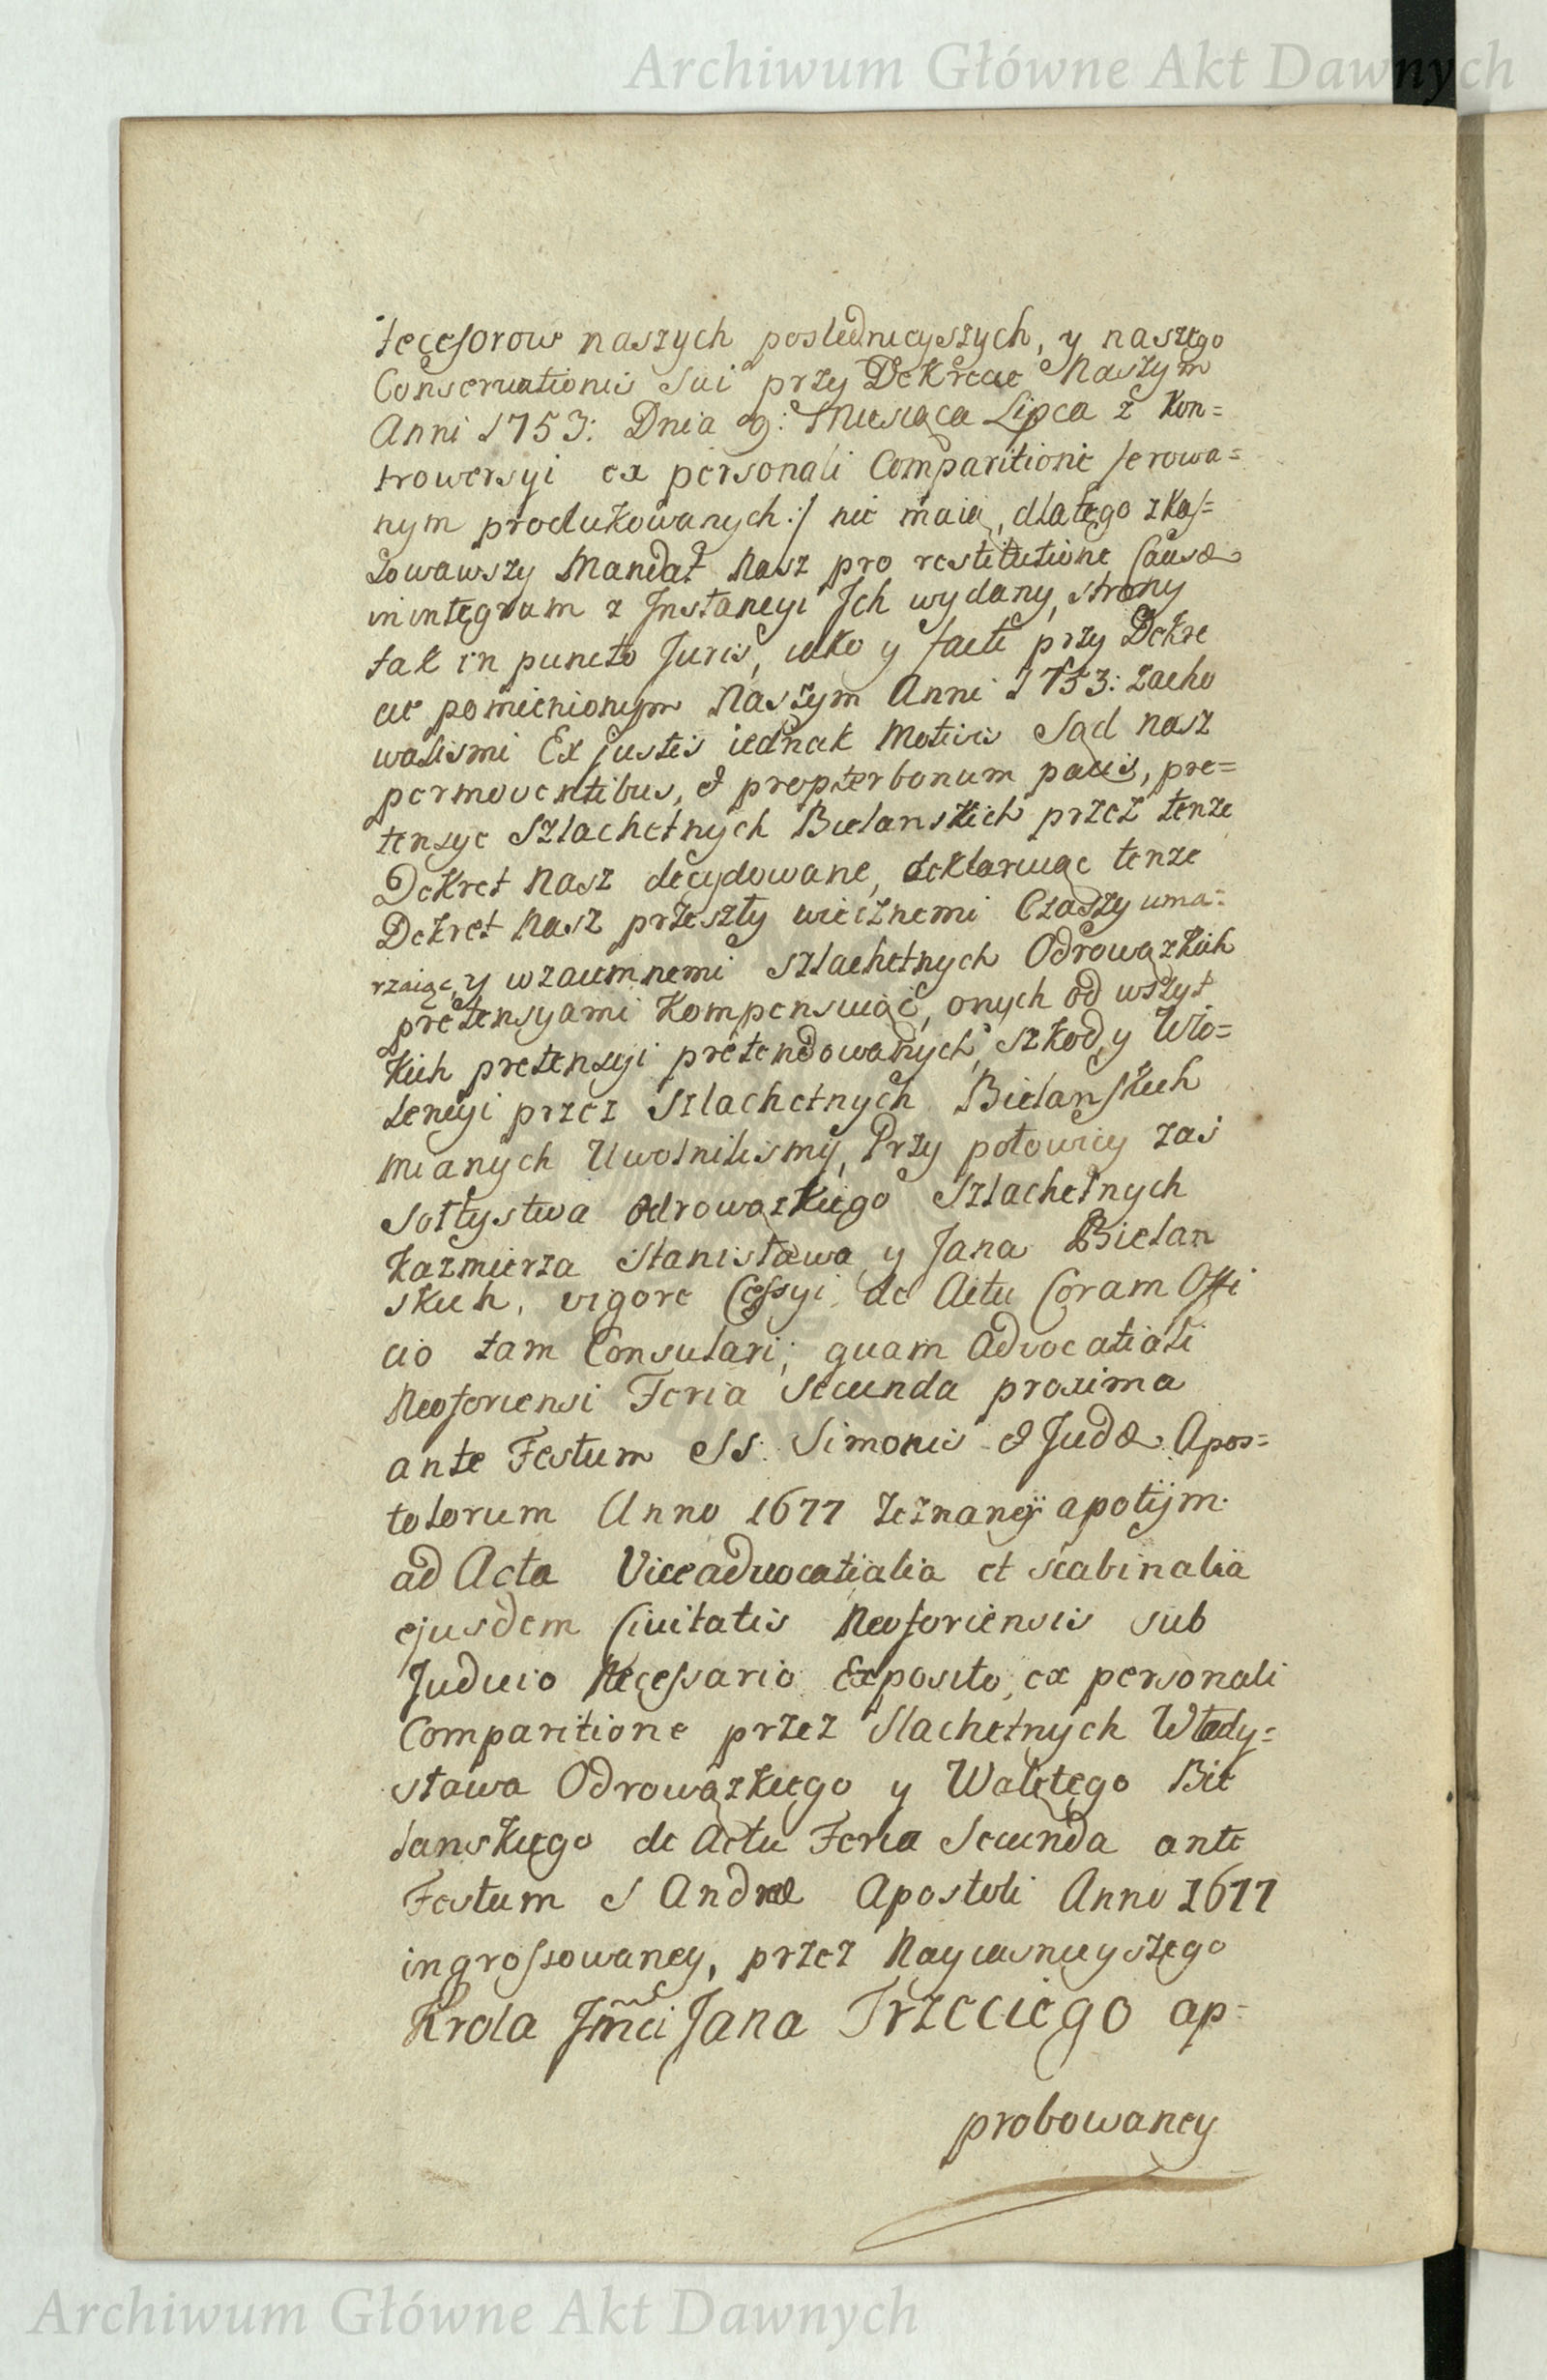 Archiwum Główne Akt Dawnych
tecesorow naszych poslednieyszych, y naszego
Conservationis Sui przy Dekrecie Naszym
Anni 1753: Dnia 9: Miesiąca Lipca z Kon=
trowersyi ex personali Comparitione ferowa=
nym produkowanych :/ nie maią, dlatego zkas=
sowawszy Mandat Nasz pro restitutione Causæ
in integrum z Instancyi Ich wydany, strony
tak in puncto Juris, iako y facti przy Dekre
cie pomienionym Naszym Anni 1753: zacho
walismi Ex justis iednak Motivis Sąd nasz
permoventibus, et propter bonum pacis, pre=
tensye Szlachetnych Bielanskich przez tenze
Dekret Nasz decydowane, deklaruiąc tenze
Dekret Nasz przeszły wiecznemi Czasy uma=
rzaiąc, y wzaiemnemi Szlachetnych Odrowązkich
pretensyami Kompensuiąc, onych od wszyst
kich pretensyi pretendowanych, szkod, y Wio=
lencyi przez Szlachetnych Bielanskich
mianych Uwolnilismy, Przy połowicy zas
Sołtystwa Odrowązkiego Szlachetnych
Kazmierza Stanisława y Jana Bielan
skich, vigore Cessyi de Actu Coram Offi
cio tam Consulari, quam Advocatiali
Neoforiensi Feria Secunda proxima
ante Festum SS: Simonis et Judæ Apos=
tolorum Anno 1677 Zeznaney a potym
ad Acta Viceadvocatialia et scabinalia
ejusdem Civitatis Neoforiensis sub
Judicio Necessario Exposito, ex personali
Comparitione przez Slachetnych Włady=
sława Odrowązkiego y Walętego Bie
lanskiego de Actu Feria Secunda ante
Festum S Andreæ Apostoli Anno 1677
ingrossowaney, przez Nayiasnieyszego
Krola Jmci Jana Trzeciego ap=
probowaney
Archiwum Główne Akt Dawnych